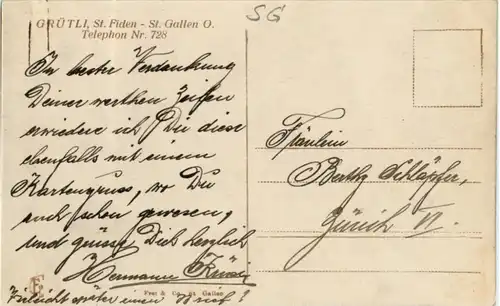 SG
GRÜTLI, St. Fiden - St. Gallen O.
Telephon Nr. 728
In bester Verdankung
Deiner werthen Zeilen
erwiedere ich Dir diese
ebenfalls mit einem
Kartengruss, wo Du
auch schon gewesen,
und grüsse Dich herzlich
Hermann
Vieleicht später einen
Fräulein
Bertha Schläpfer,
Zürich VI.
Frei & Co., St. Gallen